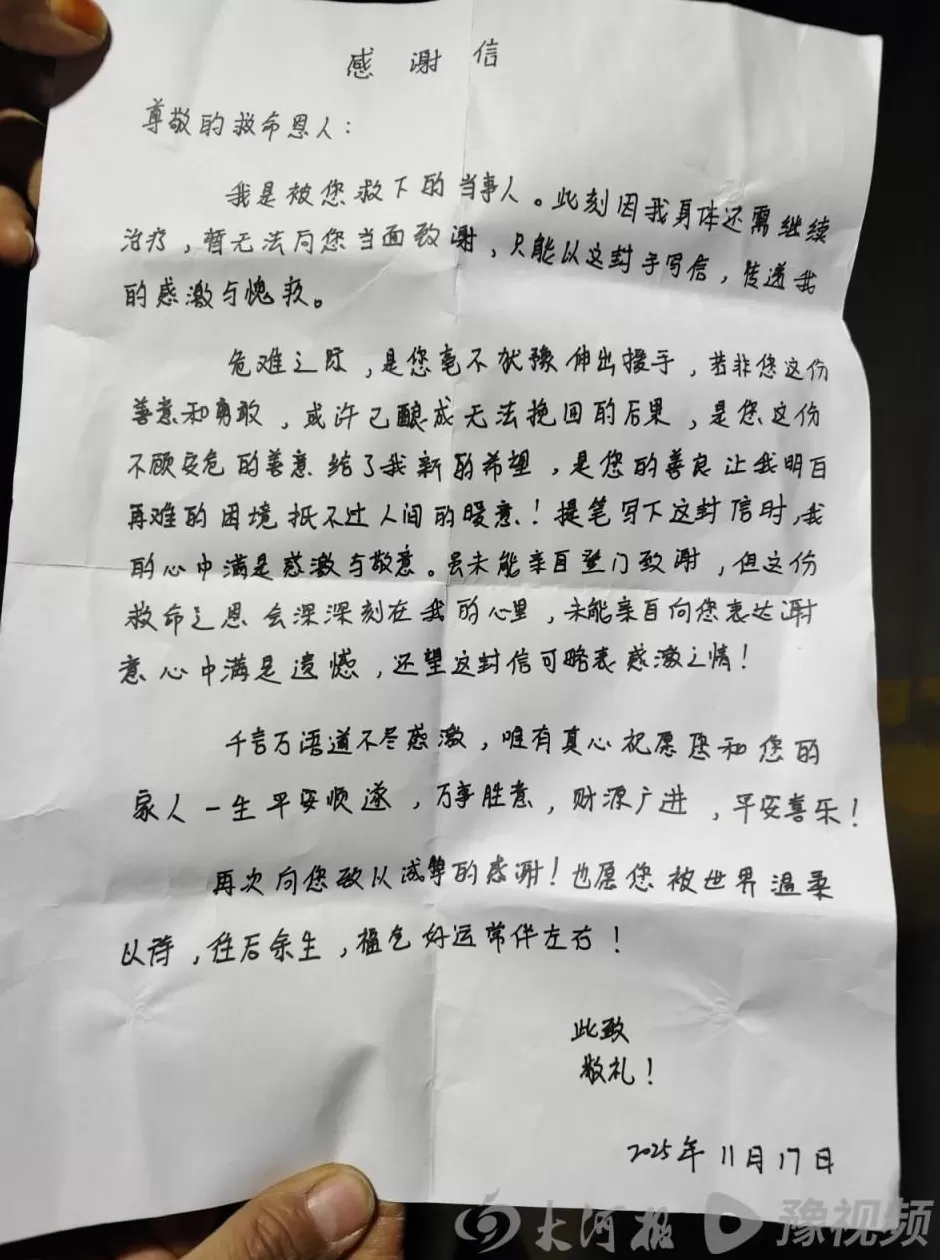 感谢信
尊敬的救命恩人：
我是被您救下的当事人。此刻因我身体还需继续
治疗，暂无法向您当面致谢，只能以这封手写信，传递我
的感激与愧疚。
危难之际，是您毫不犹豫伸出援手，若非您这份
善意和勇敢，或许已酿成无法挽回的后果，是您这份
不顾安危的善意给了我新的希望，是您的善良让我明白
再难的困境抵不过人间的暖意！提笔写下这封信时，我
的心中满是感激与敬意。虽未能亲自登门致谢，但这份
救命之恩会深深刻在我的心里，未能亲自向您表达谢
意心中满是遗憾，还望这封信可略表感激之情！
千言万语道不尽感激，唯有真心祝愿您和您的
家人一生平安顺遂，万事胜意，财源广进，平安喜乐！
再次向您致以诚挚的感谢！也愿您被世界温柔
以待，往后余生，福气好运常伴左右！
此致
敬礼！
2025年11月17日
大河报 豫视频